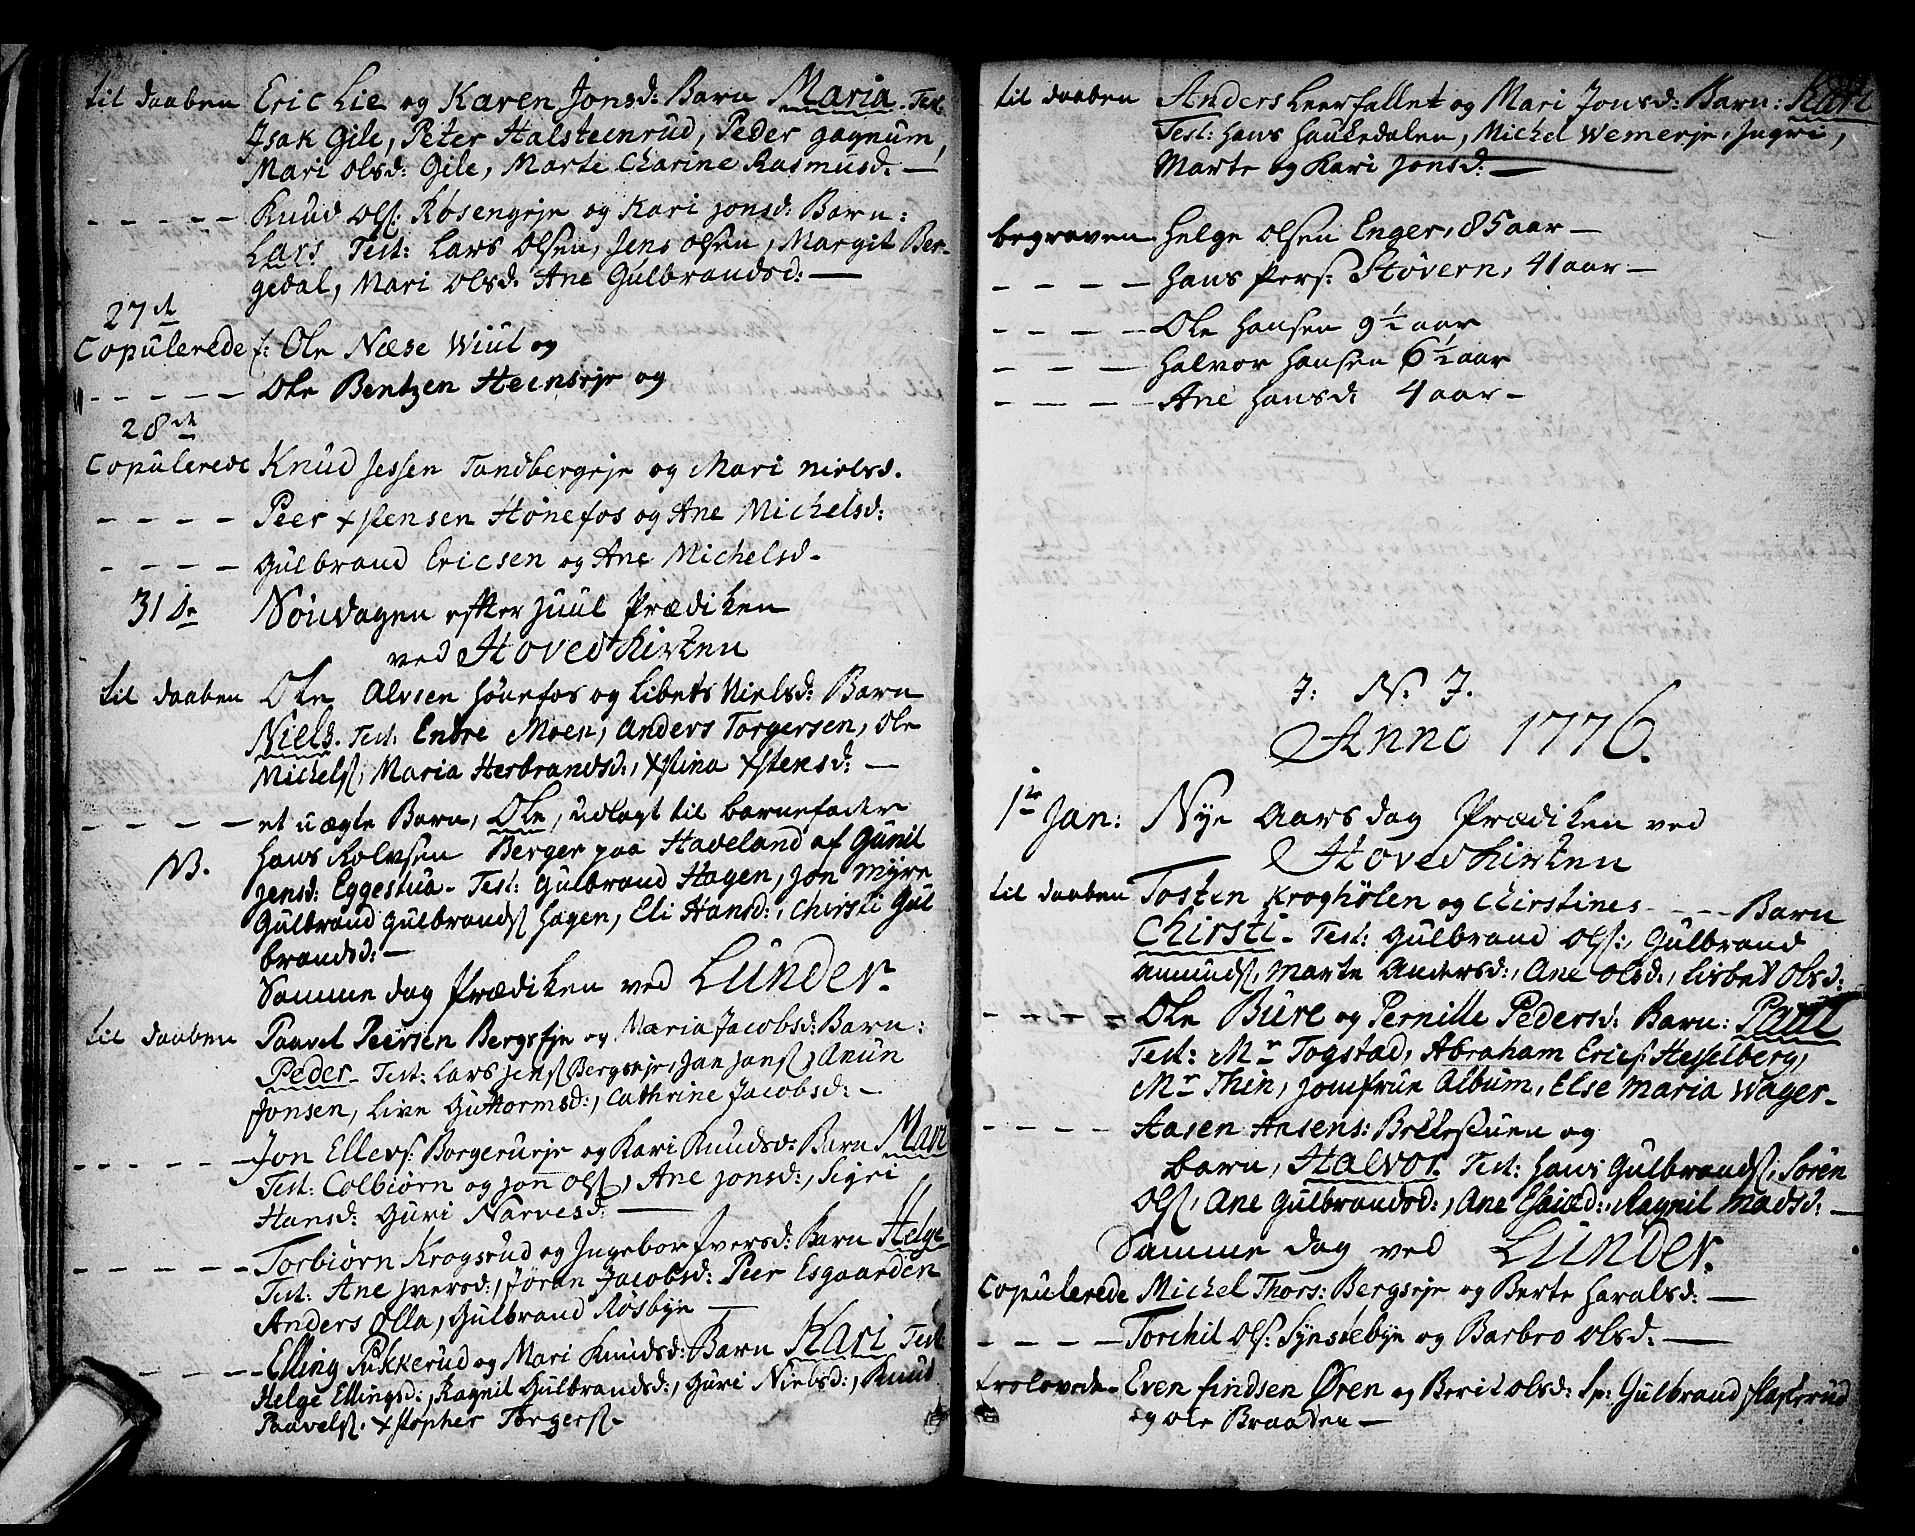 til daaben Eric Lie og Karen Jonsd: Barn Maria. Test:
Isak Gile, Peter Halsteenrud, Peder gagnum,
Mari Olsd: Gile, Marte Charine Rasmusd. —
- - - - Knud Ols: Røsengeje og Kari Jonsd: Barn:
Lars. Test: Lars Olsen, Jens Olsen, Margit Ber-
gedal, Mari Olsd: Ane Gulbrandsd: —
27de
Copulerede f: Ole Næse Wiul og
- - - - - Ole Bentzen Heenseje og
28de
Copulerede Knud Jessen Tandbergeje og Mari Nielsd.
- - - - Peer Xstensen Hønefos og Ane Michelsd:
- - - - Gulbrand Ericsen og Ane Michelsd-
31de Søndagen efter Juul Prædiken
ved Hovedkirken
til daaben Ole Alvsen Hønefos og Libets Nielsd: Barn
Niels. Test: Endre Moen, Anders Torgersen, Ole
Michels, Maria Herbrandsd:, Xstina Xstensd: —
- - - - et uægte Barn, Ole, udlagt til barnefader
NB. Hans Rolvsen Berger paa Haveland af Gunil
Jensd: Eggestua- Test: Gulbrand Hagen, Jon Myre
Gulbrand Gulbrands Hagen, Eli Hansd:, Chirsti Gul
brandsd: —
Samme dag Prædiken ved Lunder.
til daaben Paavel Peersen Bergseje og Maria Jacobsd: Barn:
Peder- Test: Lars Jens Bergseje, Jan Jans, Anun
Jonsen, Live Guttormsd:, Cathrine Jacobsd: —
- - - - - Jon Ellevs: Borgerueje og Kari Knudsd: Barn Mari
Test: Colbiørn og Jon Ols, Ane Jonsd:, Sigri
Hansd: Guri Narvesd: —
- - - - - Torbiørn Krogsrud og Ingebor Iversd: Barn Helge
Test: Ane Iversd:, Jøran Jacobsd: Peer Esgaarden
Anders Olla, Gulbrand Røsbye —
- - - - Elling Pukkerud og Mari Knudsd: Barn Kari Test:
Helge Ellingsd:, Ragnil Gulbrandsd:, Guri Nielsd:, Knud
Paavels. Xstopher Torgers-
til daaben Anders Leerfallet og Mari Jonsd: Barn: Kari
Test: Hans Haukedalen, Michel Wemerje, Ingri,
Marte og Kari Jonsd: —
begraven Helge Olsen Enger, 85 aar —
- - - - Hans Pers: Støvern, 41 aar —
- - - - Ole Hansen 9 1/2 aar
- - - - Halvor Hansen 6 1/2 aar
- - - - Ane Hansd: 4 aar —
I: N. J.
Anno 1776.
1te Jan: Nye Aars dag Prædiken ved
Hovedkirken
til daaben Tosten Kroghølen og Chirstines - - - Barn
Chirsti- Test: Gulbrand Ols:, Gulbrand
Amunds, Marte Andersd:, Ane Olsd:, Lisbet Olsd:
- - - - Ole Bure og Pernille Pedersd: Barn: Paul
Test: Mr Togstad, Abraham Erics: Hesselberg,
Mr Thin, Jomfrue Album, Else Maria Wager-
- - - - Aasen Ansens: Beklestuen og
barn, Halvor. Test: Hans Gulbrands, Søren
Ols, Ane Gulbrandsd:, Ane Esaiæd:, Ragnil Madsd: —
Samme dag ved Lunder.
Copulerede Michel Thors: Bergseje og Berte Haralsd: —
- - - - Torchil Ols: Synstebye og Barbro Olsd: —
trolovede- Even Findsen Øren og Berit Olsd: Sp: Gulbrand
og Ole Braaten —